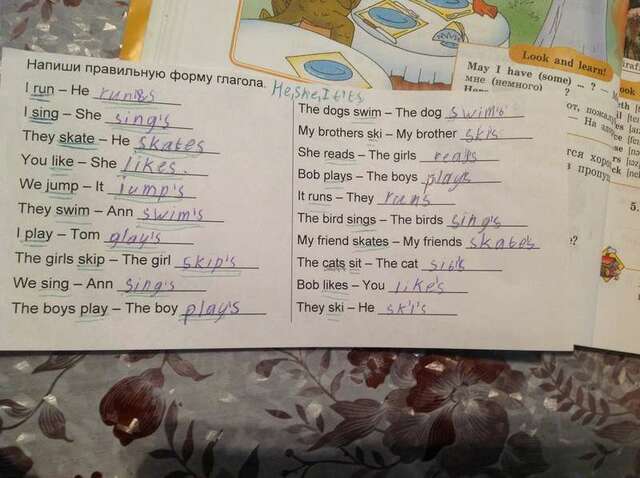 Напиши правильную форму глагола. He, she, It's
I run – He runs
I sing – She sing's
They skate – He skates
You like – She likes.
We jump – It jump's
They swim – Ann swim's
I play – Tom play's
The girls skip – The girl skip's
We sing – Ann sing's
The boys play – The boy play's
The dogs swim – The dog swim's
My brothers ski – My brother skis
She reads – The girls reads
Bob plays – The boys plays
It runs – They runs
The bird sings – The birds sing's
My friend skates – My friends skate's
The cats sit – The cat sit's
Bob likes – You like's
They ski – He ski's
Look and learn!
May I have (some) ... ? – М
мне (немного)
?
от, пожал
– На здо
тся хоро
в пропу
?
ook
5.